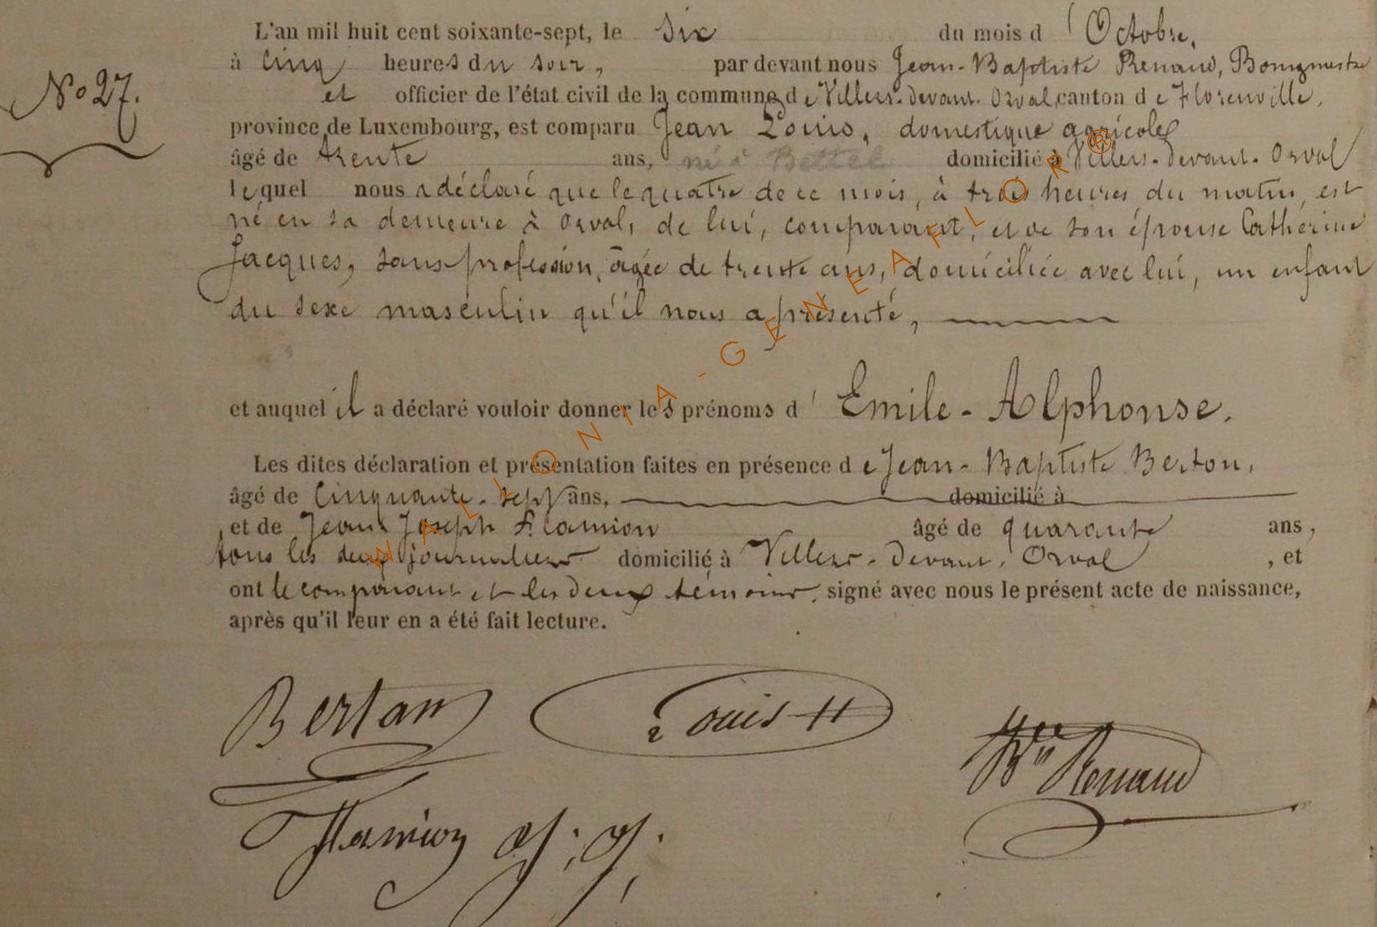 L'an mil huit cent soixante-sept, le six du mois d'Octobre,
à cinq heures du soir, par devant nous Jean-Baptiste Renaud, Bourgmestre
N° 27.
et officier de l'état civil de la commune de Villers-devant-Orval, canton de Florenville,
province de Luxembourg, est comparu Jean Louis, domestique agricole,
âgé de trente ans, né à Bettel domicilié à Villers-devant-Orval
lequel nous a déclaré que le quatre de ce mois, à trois heures du matin, est
né en sa demeure à Orval, de lui, comparant, et de son épouse Cathérine
Jacques, sans profession, âgée de trente ans, domiciliée avec lui, un enfant
du sexe masculin qu'il nous a présenté,
et auquel il a déclaré vouloir donner les prénoms d'Emile-Alphonse.
Les dites déclaration et présentation faites en présence de Jean-Baptiste Berton,
âgé de cinquante-sept ans, domicilié à
et de Jean Joseph Flamion âgé de quarante ans,
tous les deux journaliers domicilié à Villers-devant-Orval, et
ont le comparant et les deux témoins, signé avec nous le présent acte de naissance,
après qu'il leur en a été fait lecture.
Bertan Louis H
Bte Renaud
Flamion J: J:
WALLONIA-GENEAFLOR®